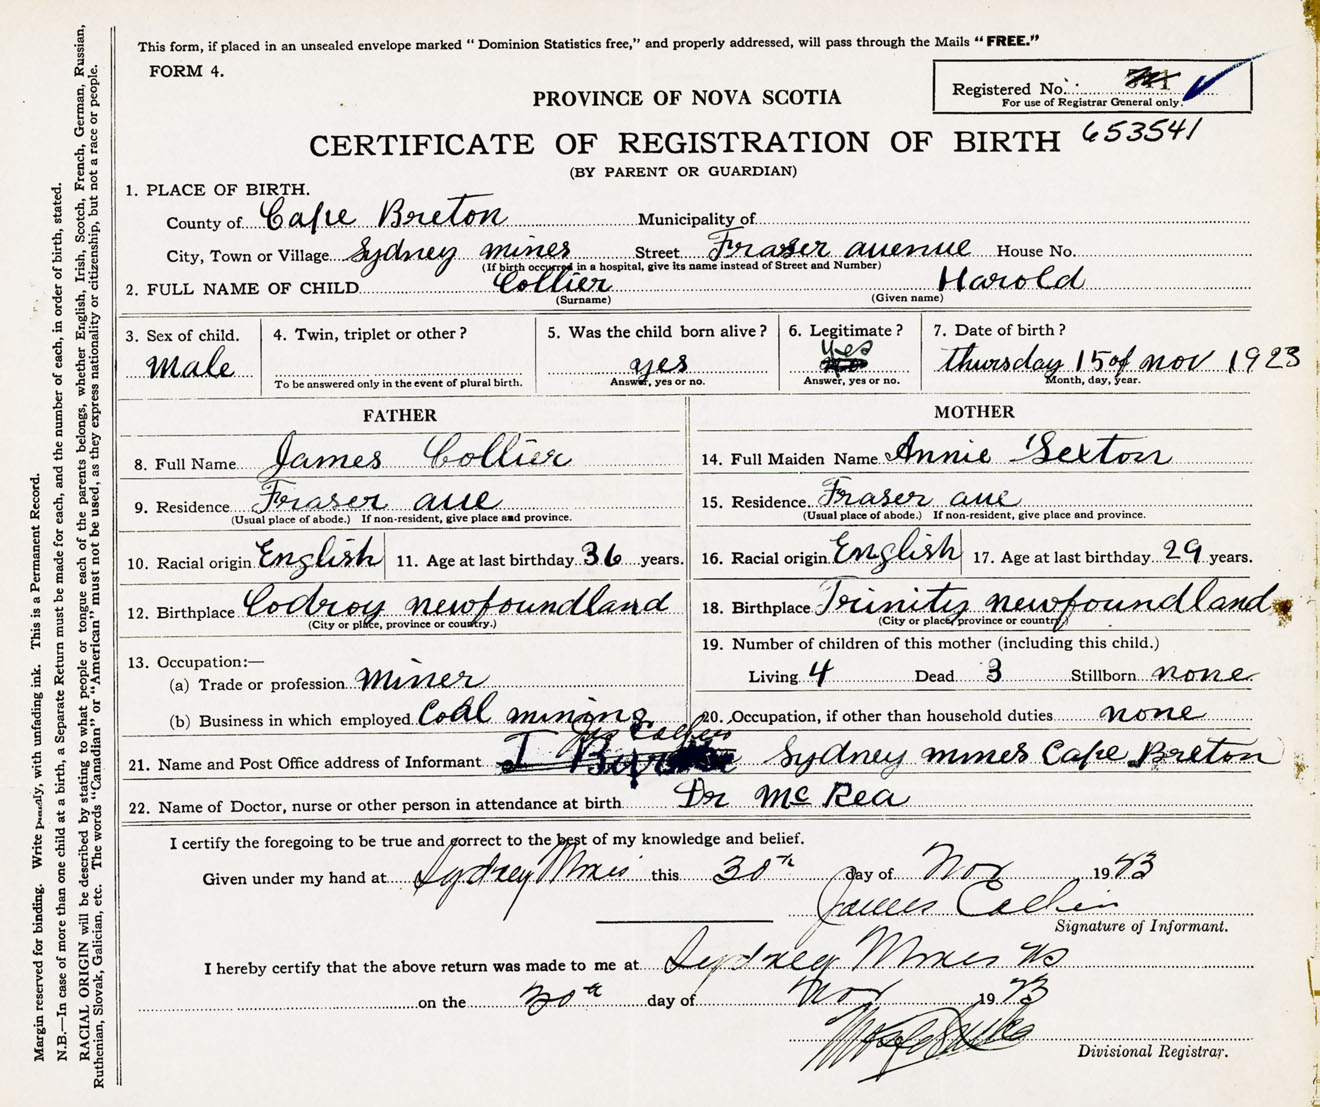 This form, if placed in an unsealed envelope marked "Dominion Statistics free," and properly addressed, will pass through the Mails "FREE."
FORM 4.
Registered No.
For use of Registrar General only.
PROVINCE OF NOVA SCOTIA
CERTIFICATE OF REGISTRATION OF BIRTH 653541
(BY PARENT OR GUARDIAN)
1. PLACE OF BIRTH.
County of Cape Breton Municipality of
City, Town or Village Sydney mines Street Fraser avenue House No.
(If birth occurred in a hospital, give its name instead of Street and Number)
2. FULL NAME OF CHILD Collier Harold
(Surname) (Given name)
3. Sex of child. 4. Twin, triplet or other? 5. Was the child born alive? 6. Legitimate? 7. Date of birth?
Male yes yes thursday 15 of nov 1923
To be answered only in the event of plural birth. Answer, yes or no. Answer, yes or no. Month, day, year.
FATHER
8. Full Name James Collier
9. Residence Fraser ave
(Usual place of abode.) If non-resident, give place and province.
10. Racial origin English 11. Age at last birthday 36 years.
12. Birthplace Codroy newfoundland
(City or place, province or country.)
13. Occupation:—
(a) Trade or profession miner
(b) Business in which employed Coal mining
MOTHER
14. Full Maiden Name Annie Sexton
15. Residence Fraser ave
(Usual place of abode.) If non-resident, give place and province.
16. Racial origin English 17. Age at last birthday 29 years.
18. Birthplace Trinity newfoundland
(City or place, province or country.)
19. Number of children of this mother (including this child.)
Living 4 Dead 3 Stillborn none
20. Occupation, if other than household duties none
21. Name and Post Office address of Informant Sydney mines Cape Breton
22. Name of Doctor, nurse or other person in attendance at birth Dr McRea
I certify the foregoing to be true and correct to the best of my knowledge and belief.
Given under my hand at Sydney Mines this 30th day of Nov 1923
James Collier
Signature of Informant.
I hereby certify that the above return was made to me at Sydney Mines NS
on the 30th day of Nov 1923
Divisional Registrar.
Margin reserved for binding. Write plainly, with unfading ink. This is a Permanent Record.
N.B.—In case of more than one child at a birth, a Separate Return must be made for each, and the number of each, in order of birth, stated.
RACIAL ORIGIN will be described by stating to what people or tongue each of the parents belongs, whether English, Irish, Scotch, French, German, Russian,
Ruthenian, Slovak, Galician, etc. The words "Canadian" or "American" must not be used, as they express nationality or citizenship, but not a race or people.